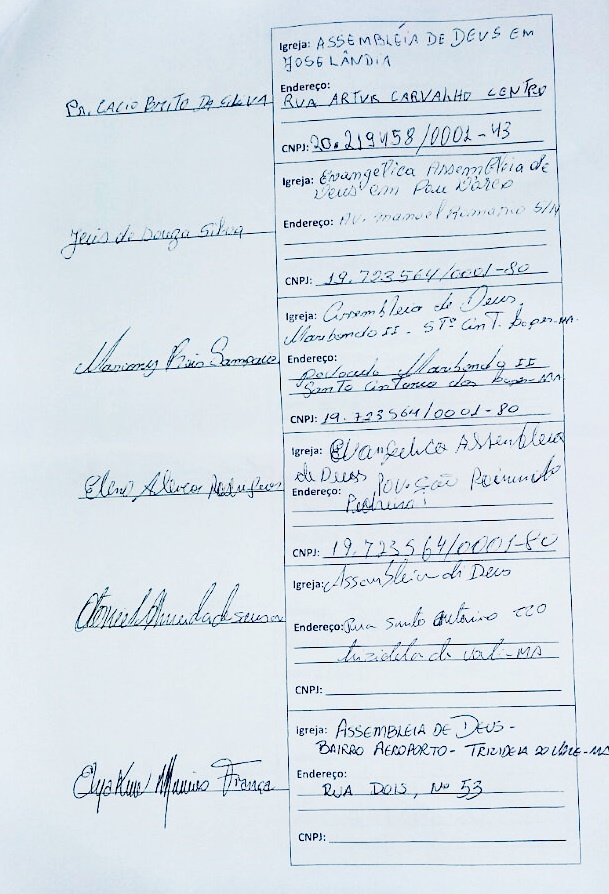 Igreja: ASSEMBLÉIA DE DEUS EM
JOSELÂNDIA
Endereço:
PR. CACIO BRITO DA SILVA
RUA ARTUR CARVALHO CENTRO
CNPJ: 20.219458/0001-43
Igreja: Evangélica Assembleia de
Deus em Pau Darco
Endereço: AV. Manuel Romano S/N
de Souza Silva
CNPJ: 19.723564/0001-80
Igreja: Assembleia de Deus,
Maribondo II - STº Ant. Lopes-MA.
Endereço:
Povoado Maribondo II
Santo Antonio dos Lopes-MA
CNPJ: 19.723564/0001-80
Igreja: Evangelica Assembleia
de Deus
Endereço: POV. São Raimundo
CNPJ: 19.723564/0001-80
Igreja: Assembleia di Deus
Endereço: Rua Santo Antonio
Trizidela do vale-MA
CNPJ:
Igreja: ASSEMBLEIA DE DEUS-
BAIRRO AEROPORTO- TRIZIDELA DO VALE-MA
Endereço:
França
RUA DOIS, Nº 53
CNPJ: